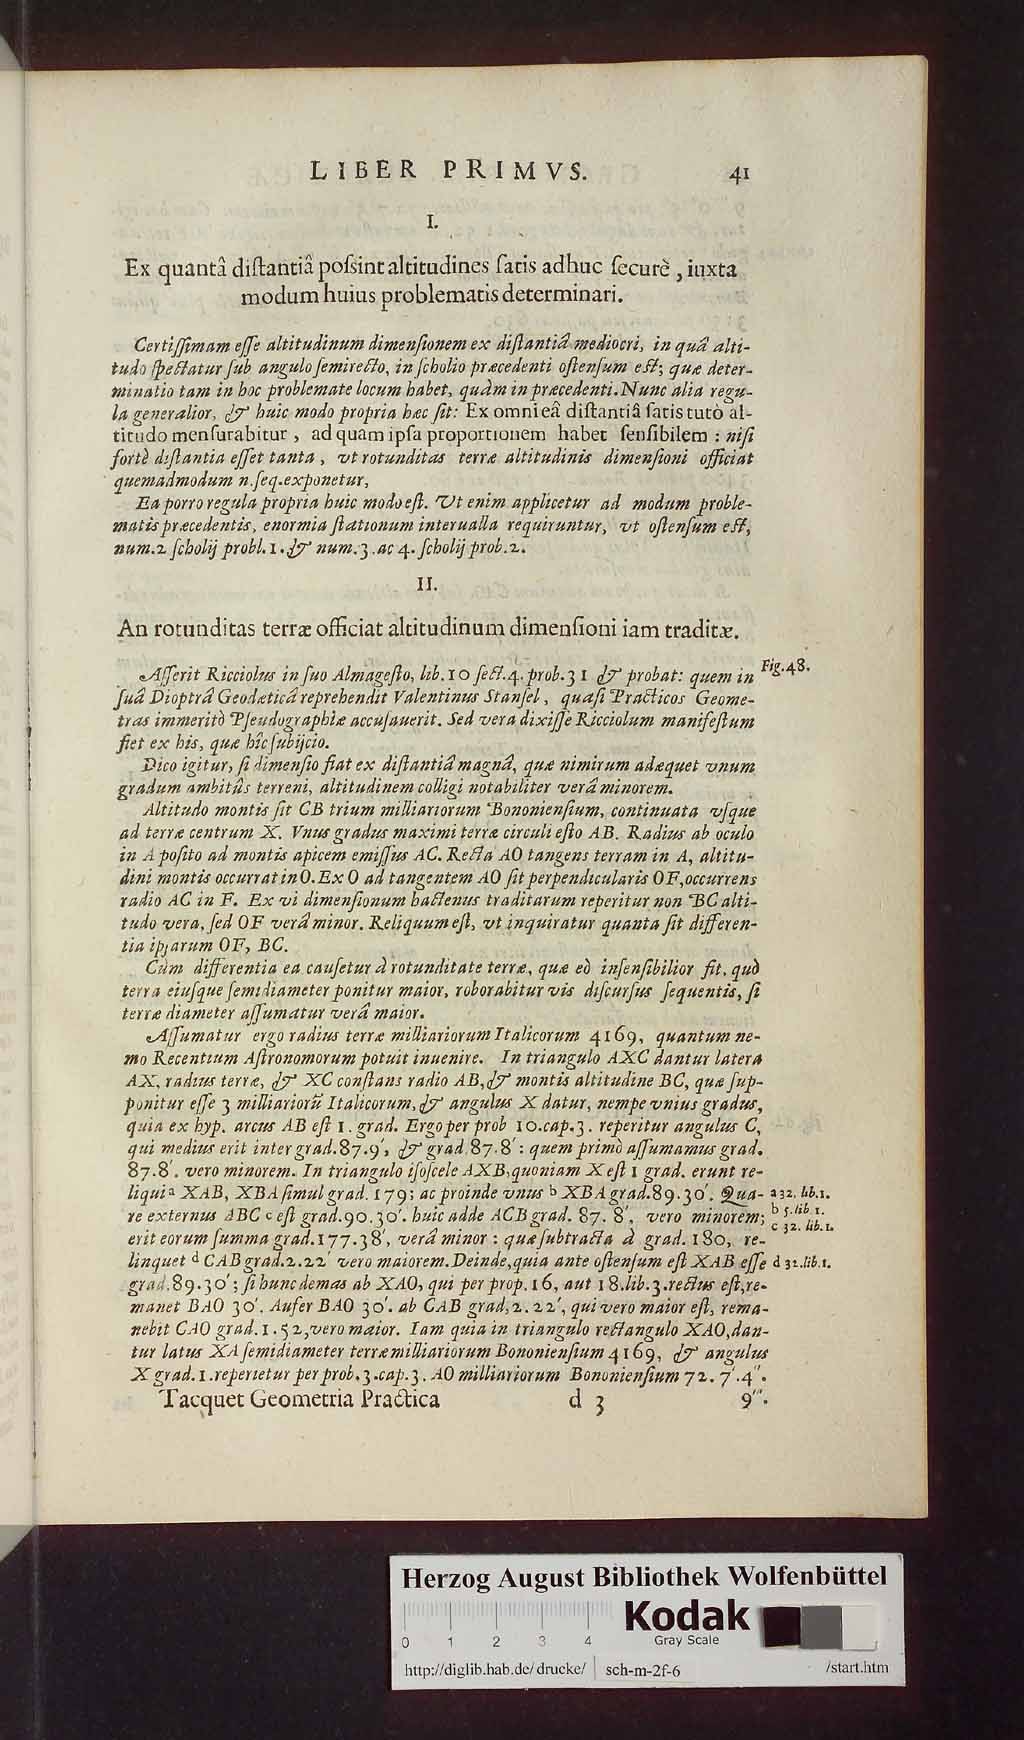 LIBER PRIMVS. 41
I.
Ex quantâ distantiâ possint altitudines satis adhuc securè, iuxta
modum huius problematis determinari.
Certissimam esse altitudinum dimensionem ex distantiâ mediocri, in quâ alti-
tudo spectatur sub angulo semirecto, in scholio præcedenti ostensum est; quæ deter-
minatio tam in hoc problemate locum habet, quàm in præcedenti. Nunc alia regu-
la generalior, & huic modo propria hæc sit: Ex omni eâ distantiâ satis tutò al-
titudo mensurabitur, ad quam ipsa proportionem habet sensibilem: nisi
fortè distantia esset tanta, vt rotunditas terræ altitudinis dimensioni officiat
quemadmodum n.seq.exponetur,
Ea porro regula propria huic modo est. Vt enim applicetur ad modum proble-
matis præcedentis, enormia stationum interualla requiruntur, vt ostensum est,
num.2 scholij probl. 1. & num.3.ac 4. scholij prob.2.
II.
An rotunditas terræ officiat altitudinum dimensioni iam traditæ.
Asserit Ricciolus in suo Almagesto, lib.10 sect.4. prob.31 & probat: quem in Fig.48.
suâ Dioptrâ Geodæticâ reprehendit Valentinus Stansel, quasi Practicos Geome-
tras immeritò Pseudographiæ accusauerit. Sed vera dixisse Ricciolum manifestum
fiet ex his, quæ hîc subijcio.
Dico igitur, si dimensio fiat ex distantiâ magnâ, quæ nimirum adæquet vnum
gradum ambitûs terreni, altitudinem colligi notabiliter verâ minorem.
Altitudo montis sit CB trium milliariorum Bononiensium, continuata vsque
ad terræ centrum X. Vnus gradus maximi terræ circuli esto AB. Radius ab oculo
in A posito ad montis apicem emissus AC. Recta AO tangens terram in A, altitu-
dini montis occurrat in O. Ex O ad tangentem AO sit perpendicularis OF, occurrens
radio AC in F. Ex vi dimensionum hactenus traditarum reperitur non BC alti-
tudo vera, sed OF verâ minor. Reliquum est, vt inquiratur quanta sit differen-
tia ipsarum OF, BC.
Cùm differentia ea causetur à rotunditate terræ, quæ eò insensibilior fit, quò
terra eiusque semidiameter ponitur maior, roborabitur vis discursus sequentis, si
terræ diameter assumatur verâ maior.
Assumatur ergo radius terræ milliariorum Italicorum 4169, quantum ne-
mo Recentium Astronomorum potuit inuenire. In triangulo AXC dantur latera
AX, radius terræ, & XC constans radio AB, & montis altitudine BC, quæ sup-
ponitur esse 3 milliariorũ Italicorum, & angulus X datur, nempe vnius gradus,
quia ex hyp. arcus AB est 1. grad. Ergo per prob 10.cap.3. reperitur angulus C,
qui medius erit inter grad.87.9', & grad.87.8': quem primò assumamus grad.
87.8'. vero minorem. In triangulo isoscele AXB, quoniam X est 1 grad. erunt re-
liqui a XAB, XBA simul grad. 179; ac proinde vnus b XBA grad.89.30'. Qua- a 32. lib.1.
re externus ABC c est grad.90.30'. huic adde ACB grad. 87. 8', vero minorem; b 5.lib 1. c 32. lib.1.
erit eorum summa grad.177.38', verâ minor: quæ subtracta à grad. 180, re-
linquet d CAB grad.2.22' vero maiorem. Deinde, quia ante ostensum est XAB esse d 32.lib.1.
grad.89.30'; si hunc demas ab XAO, qui per prop.16, aut 18.lib.3.rectus est, re-
manet BAO 30'. Aufer BAO 30'. ab CAB grad, 2. 22', qui vero maior est, rema-
nebit CAO grad.1.52, vero maior. Iam quia in triangulo rectangulo XAO, dan-
tur latus XA semidiameter terræ milliariorum Bononiensium 4169, & angulus
X grad.1.reperietur per prob.3.cap.3. AO milliariorum Bononiensium 72. 7'.4''.
Tacquet Geometria Practica d 3 9'''.
Herzog August Bibliothek Wolfenbüttel
Kodak
Gray Scale
0 1 2 3 4
http://diglib.hab.de/drucke/ sch-m-2f-6 /start.htm